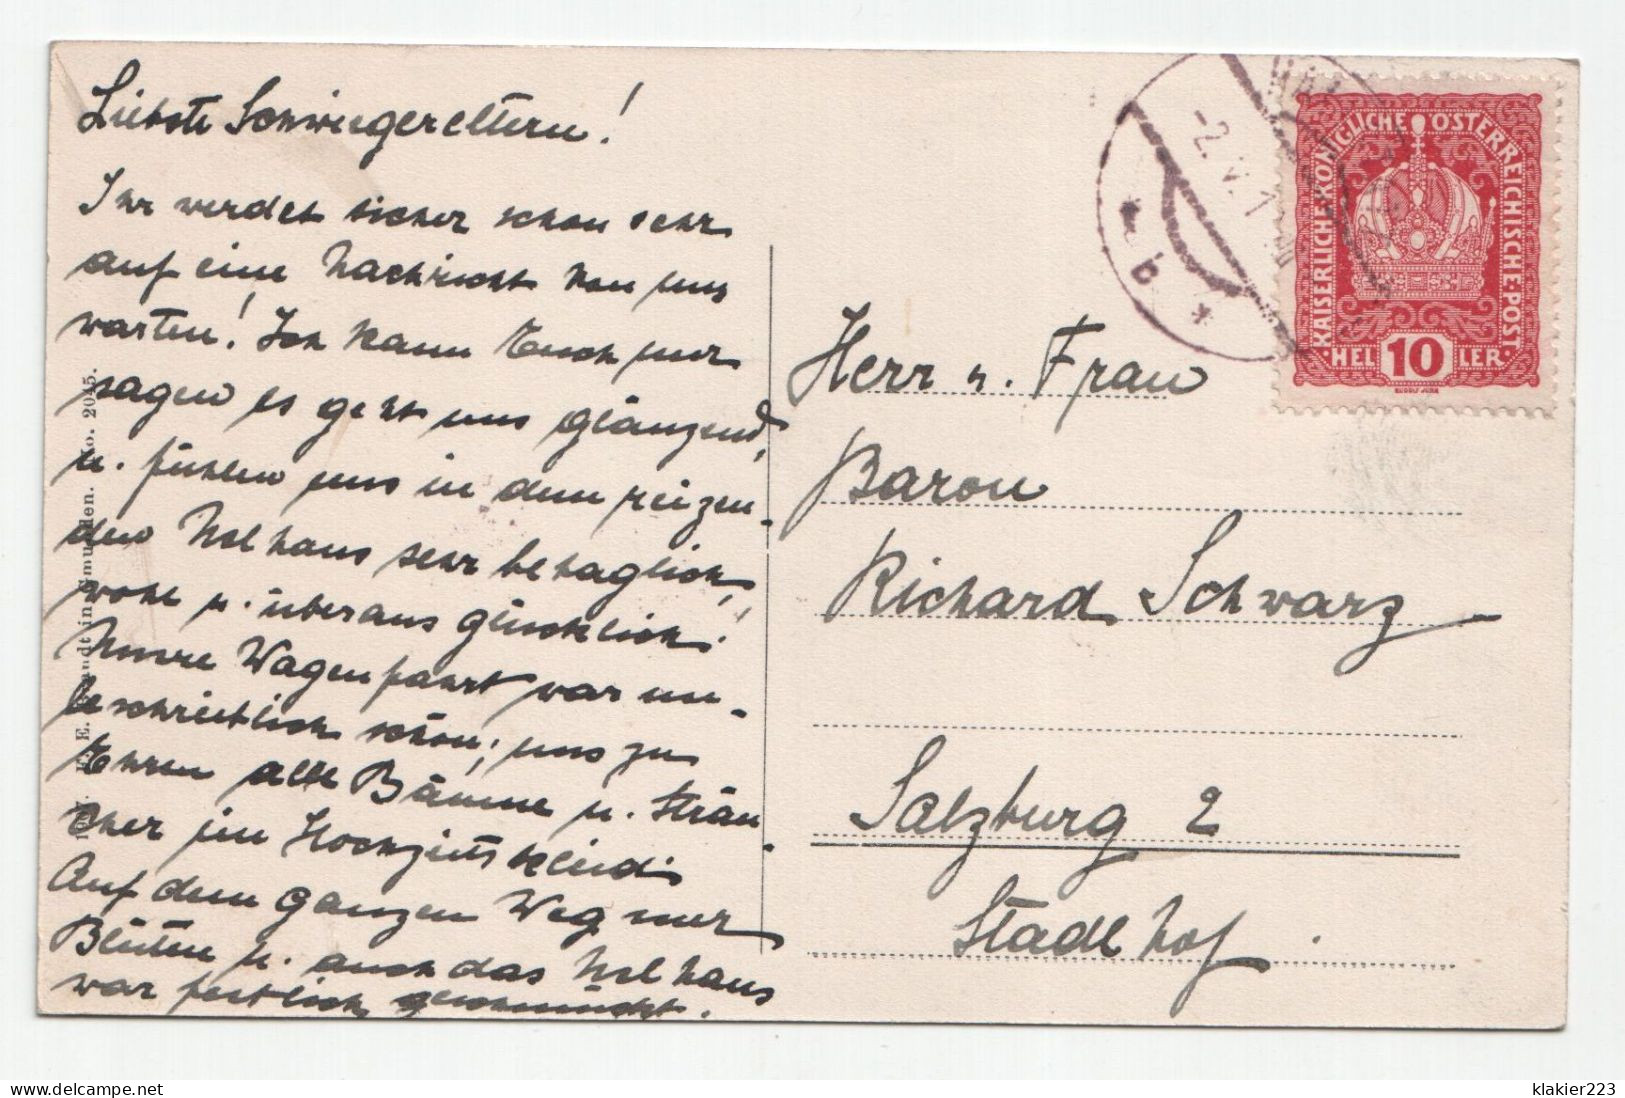 Liebste Schwiegereltern!
Ihr werdet sicher schon sehr
auf eine Nachricht von uns
warten! Ich kann Euch nur
sagen es geht uns glänzend,
u. fühlen uns in dem reizen-
den Uslhaus sehr behaglich,
wohl u. überaus glücklich!
Unsre Wagenfahrt war un-
beschreiblich schön; uns zu
Ehren alle Bäume u. Sträu-
cher im Hochzeitskleid.
Auf dem ganzen Weg nur
Blüten u. auch das Uslhaus
war festlich geschmückt.
Herr u. Frau
Baron
Richard Schwarz
Salzburg 2
Stadlhof.
-2. V. 1
* b *
KAISERLICHE KÖNIGLICHE ÖSTERREICHISCHE POST
HEL 10 LER
E. in Gmunden. No. 2045.
klakier223